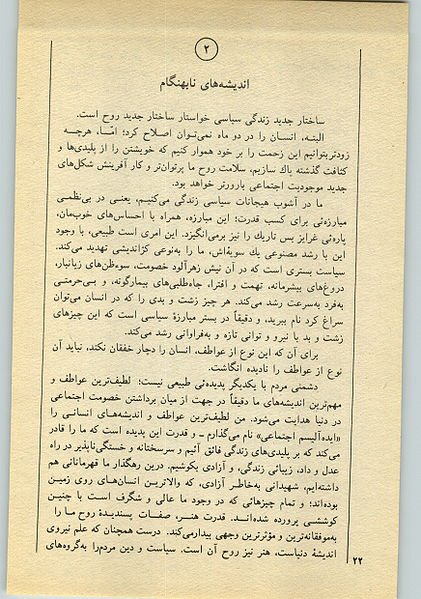 ۲
اندیشه‌های نابهنگام
ساختار جدید زندگی سیاسی خواستار ساختار جدید روح است.
البته، انسان را در دو ماه نمی‌توان اصلاح کرد؛ امّا، هرچه
زودتربتوانیم این زحمت را بر خود هموار کنیم که خویشتن را از پلیدی‌ها و
کثافت گذشته پاك سازیم، سلامت روح ما پرتوان‌تر و کار آفرینش شکل‌های
جدید موجودیت اجتماعی بارورتر خواهد بود.
ما در آشوب هیجانات سیاسی زندگی می‌کنیم، یعنی در بی‌نظمی
مبارزه‌ئی برای کسب قدرت؛ این مبارزه، همراه با احساس‌های خوب‌مان،
پاره‌ئی غرایز بس تاریك را نیز برمی‌انگیزد. این امری است طبیعی، با وجود
این با رشد مصنوعی یك سویه‌اش، ما را به‌نوعی کژاندیشی تهدید می‌کند.
سیاست بستری است که در آن نیش زهرآلود خصومت، سوءظن‌های زیانبار،
دروغ‌های بیشرمانه، تهمت و افترا، جاه‌طلبی‌های بیمارگونه، و بی‌حرمتی
به‌فرد به‌سرعت رشد می‌کند. هر چیز زشت و بدی را که در انسان می‌توان
سراغ کرد نام ببرید، و دقیقاً در بستر مبارزهٔ سیاسی است که این چیزهای
زشت و بد با نیرو و توانی تازه و به‌فراوانی رشد می‌کند.
برای آن که این نوع از عواطف، انسان را دچار خفقان نکند، نباید آن
نوع از عواطف را نادیده انگاشت.
دشمنی مردم با یکدیگر پدیده‌ئی طبیعی نیست؛ لطیف‌ترین عواطف و
مهم‌ترین اندیشه‌های ما دقیقاً در جهت از میان برداشتن خصومت اجتماعی
در دنیا هدایت می‌شود. من لطیف‌ترین عواطف و اندیشه‌های انسانی را
«ایده‌آلیسم اجتماعی» نام می‌گذارم ـ و قدرت این پدیده است که ما را قادر
می‌کند که بر پلیدی‌های زندگی فائق آئیم و سرسختانه و خستگی‌ناپذیر در راه
عدل و داد، زیبائی زندگی، و آزادی بکوشیم. درین رهگذار ما قهرمانانی هم
داشته‌ایم، شهیدانی به‌خاطر آزادی، که والاترین انسان‌های روی زمین
بوده‌اند؛ و تمام چیزهائی که در وجود ما عالی و شگرف است با چنین
کوششی پرورده شده‌انـد. قدرت هنـر، صفـات پسندیـدهٔ روح ما را
به‌موفقانه‌ترین و مؤثرترین وجهی بیدارمی‌کند. درست همچنان که علم نیروی
اندیشهٔ دنیاست، هنر نیز روح آن است. سیاست و دین مردم‌را به‌گروه‌های
۲۲